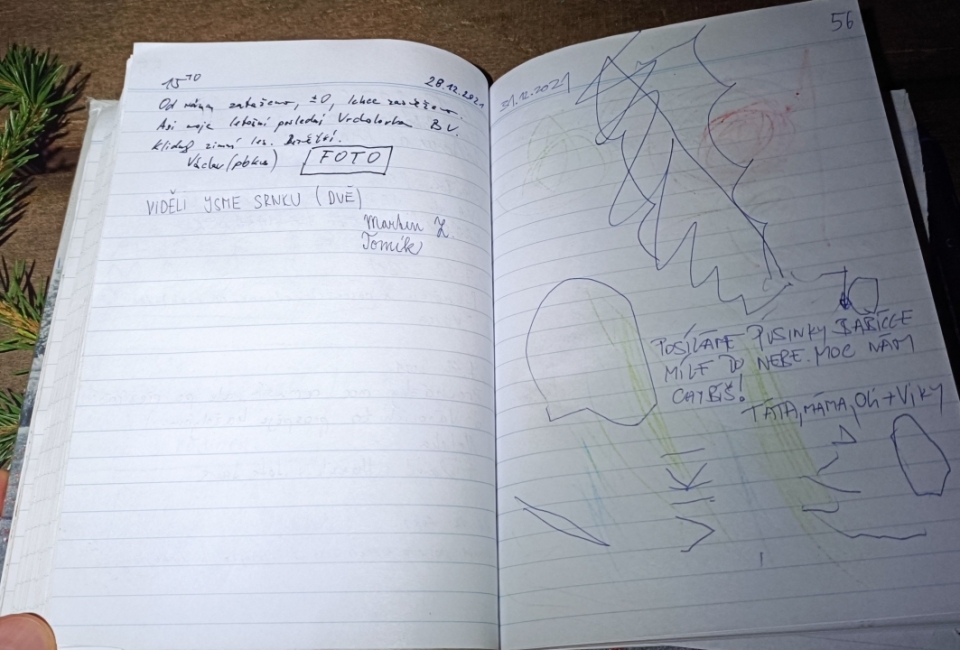 15 10 28.12.2021
Od rána zataženo, ±0, lehce zasněženo.
Asi moje letošní poslední Vrcholovka BV.
Klidný zimní les.
Václav
FOTO
VIDĚLI JSME SRNKU (DVĚ)
Martin Z.
Tomík
56
31.12.2021
POSÍLÁME PUSINKY BABIČCE
MILÉ DO NEBE. MOC NÁM
CHYBÍŠ!
TÁTA, MÁMA, Oli + Viky